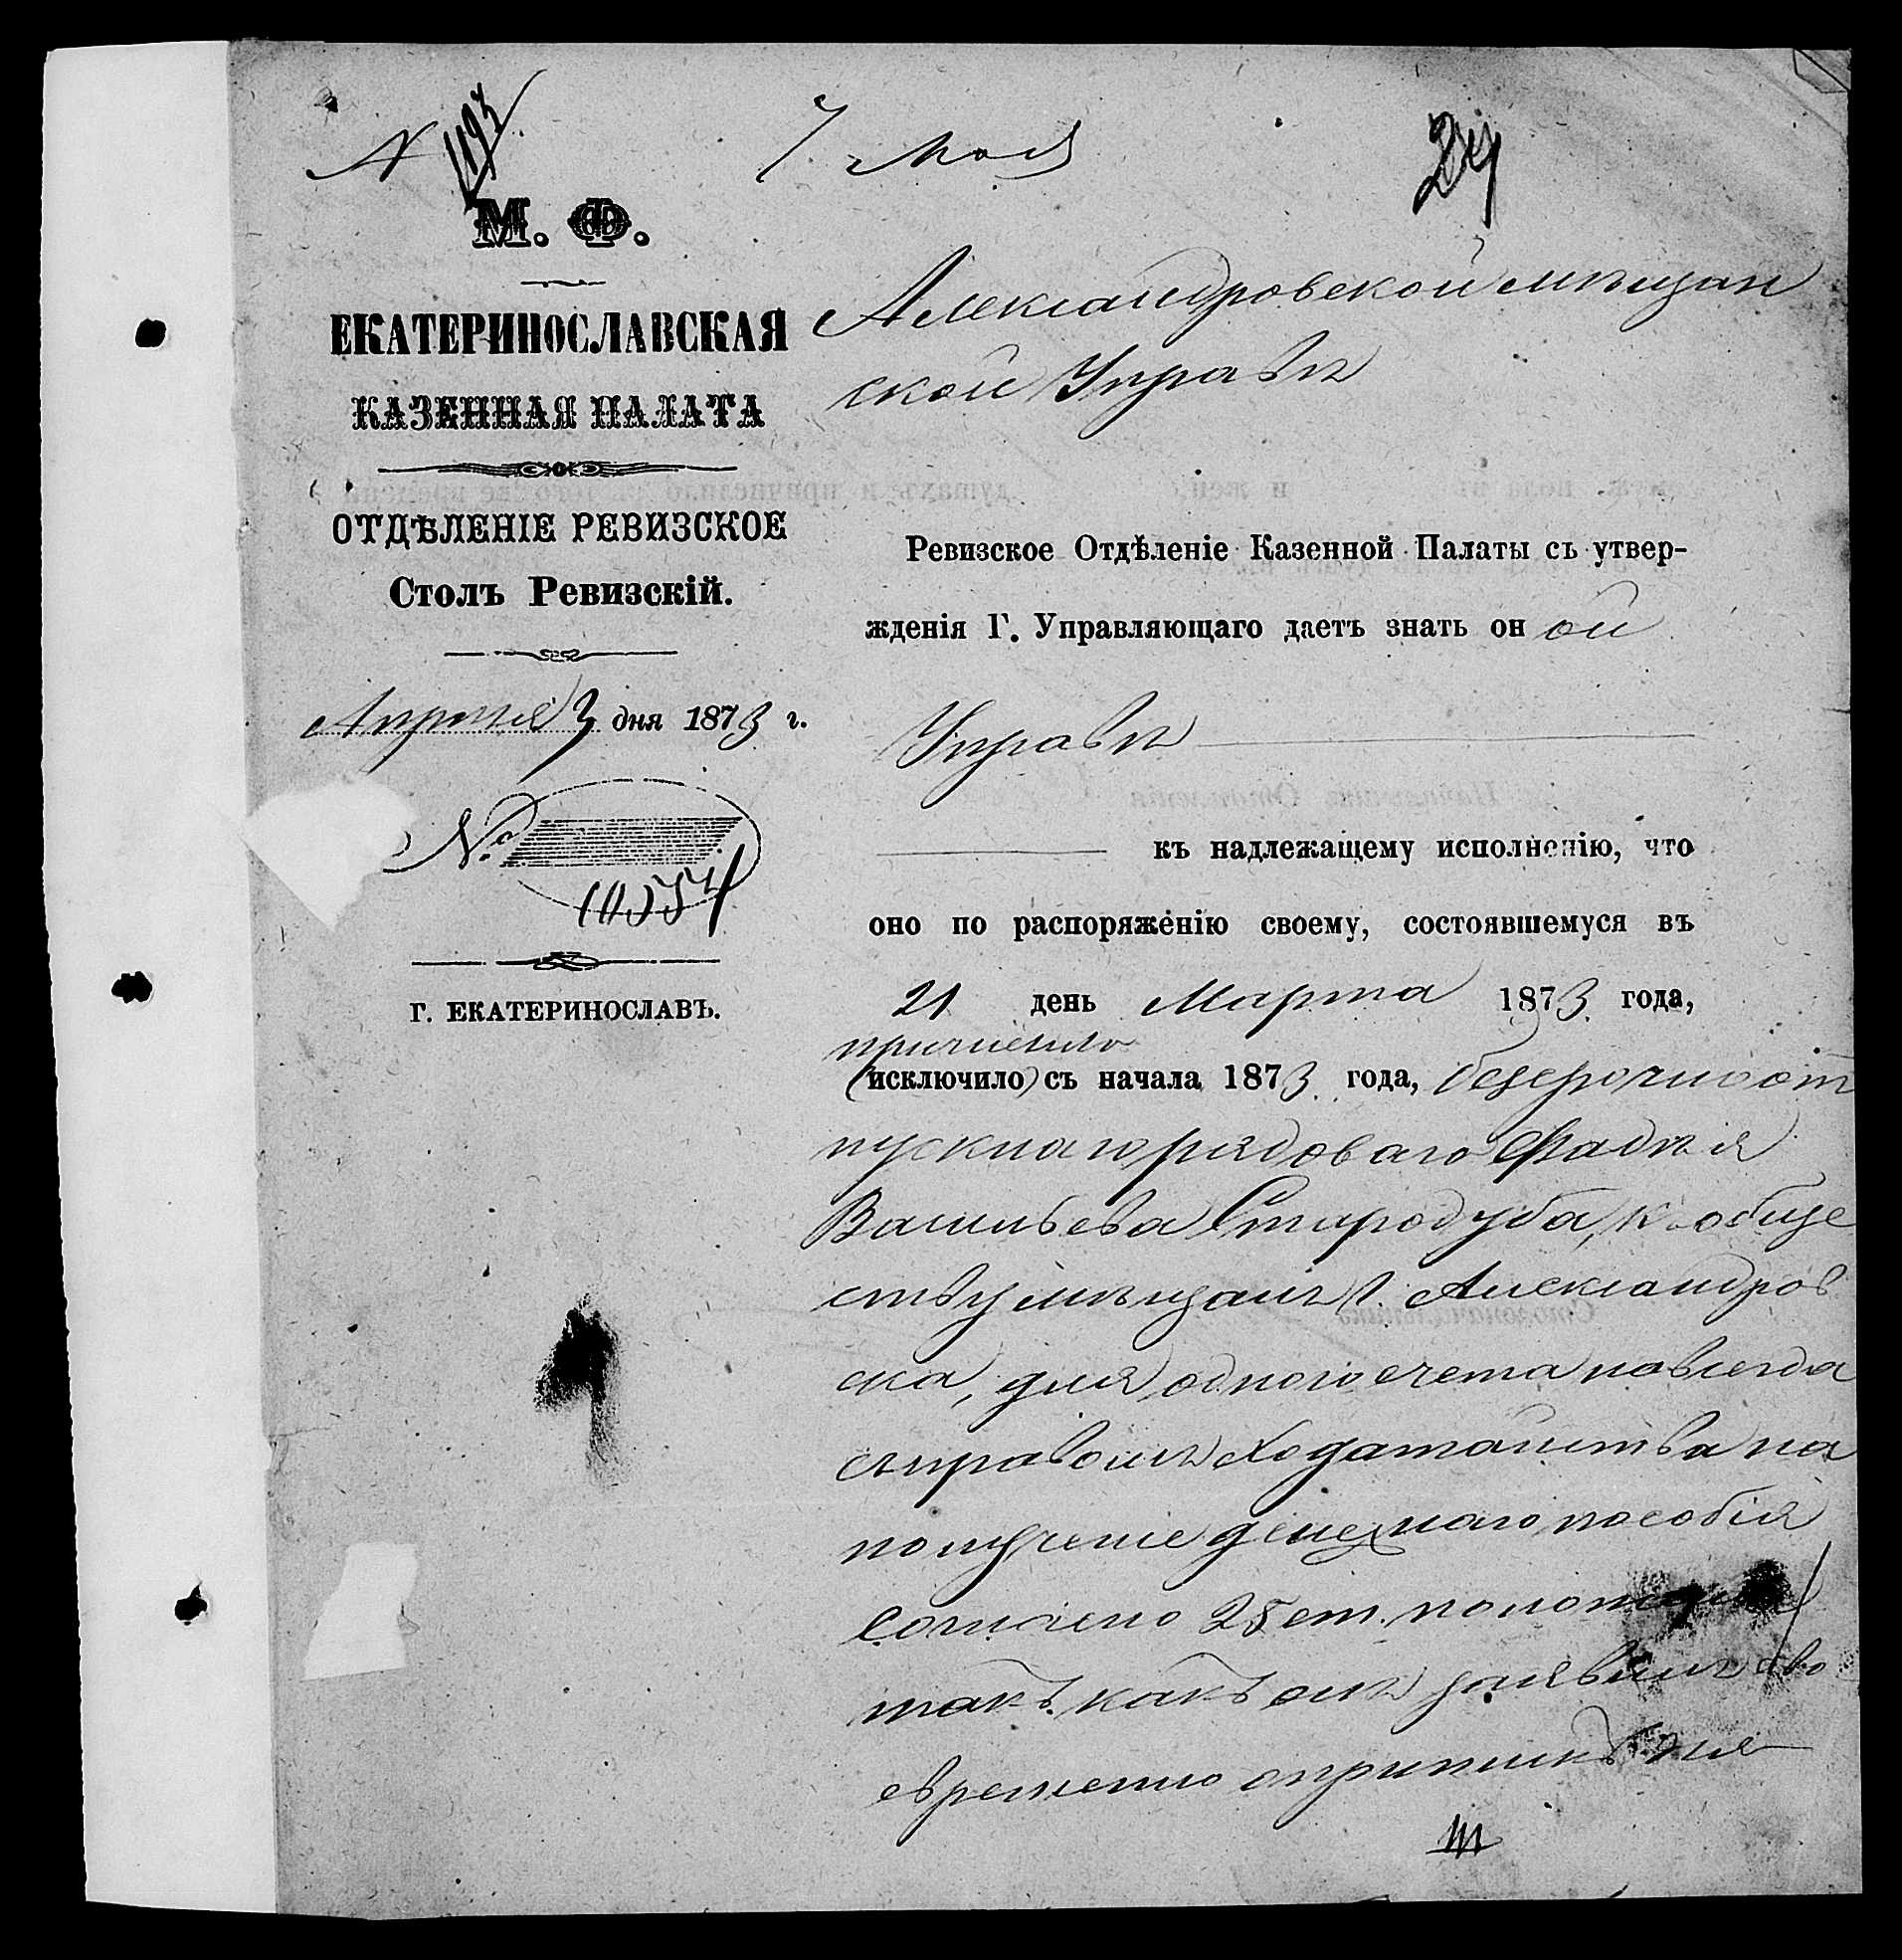 N 1193
7 Мая
24
М. Ф.
ЕКАТЕРИНОСЛАВСКАЯ
КАЗЕННАЯ ПАЛАТА
ОТДѢЛЕНІЕ РЕВИЗСКОЕ
Столъ Ревизскій.
Апреля 3 дня 1873 г.
№ 10554
Г. ЕКАТЕРИНОСЛАВЪ.
Александровской мѣщан
ской Управѣ
Ревизское Отдѣленіе Казенной Палаты съ утвер-
жденія Г. Управляющаго даетъ знать он ой
Управѣ
къ надлежащему исполненію, что
оно по распоряженію своему, состоявшемуся въ
21 день Марта 1873 года,
причислило
(исключило) съ начала 1873 года, безсрочноот
пускнаго рядоваго Фадѣя
Васильева Стародуба, къ обще
ству мѣщанъ г. Александров
ска, для одного счета навсегда
съ правомъ ходатайства на
полученіе денежнаго пособія
согласно 25 ст. положенія
такъ какъ онъ заявилъ сво
евременно о припискѣ